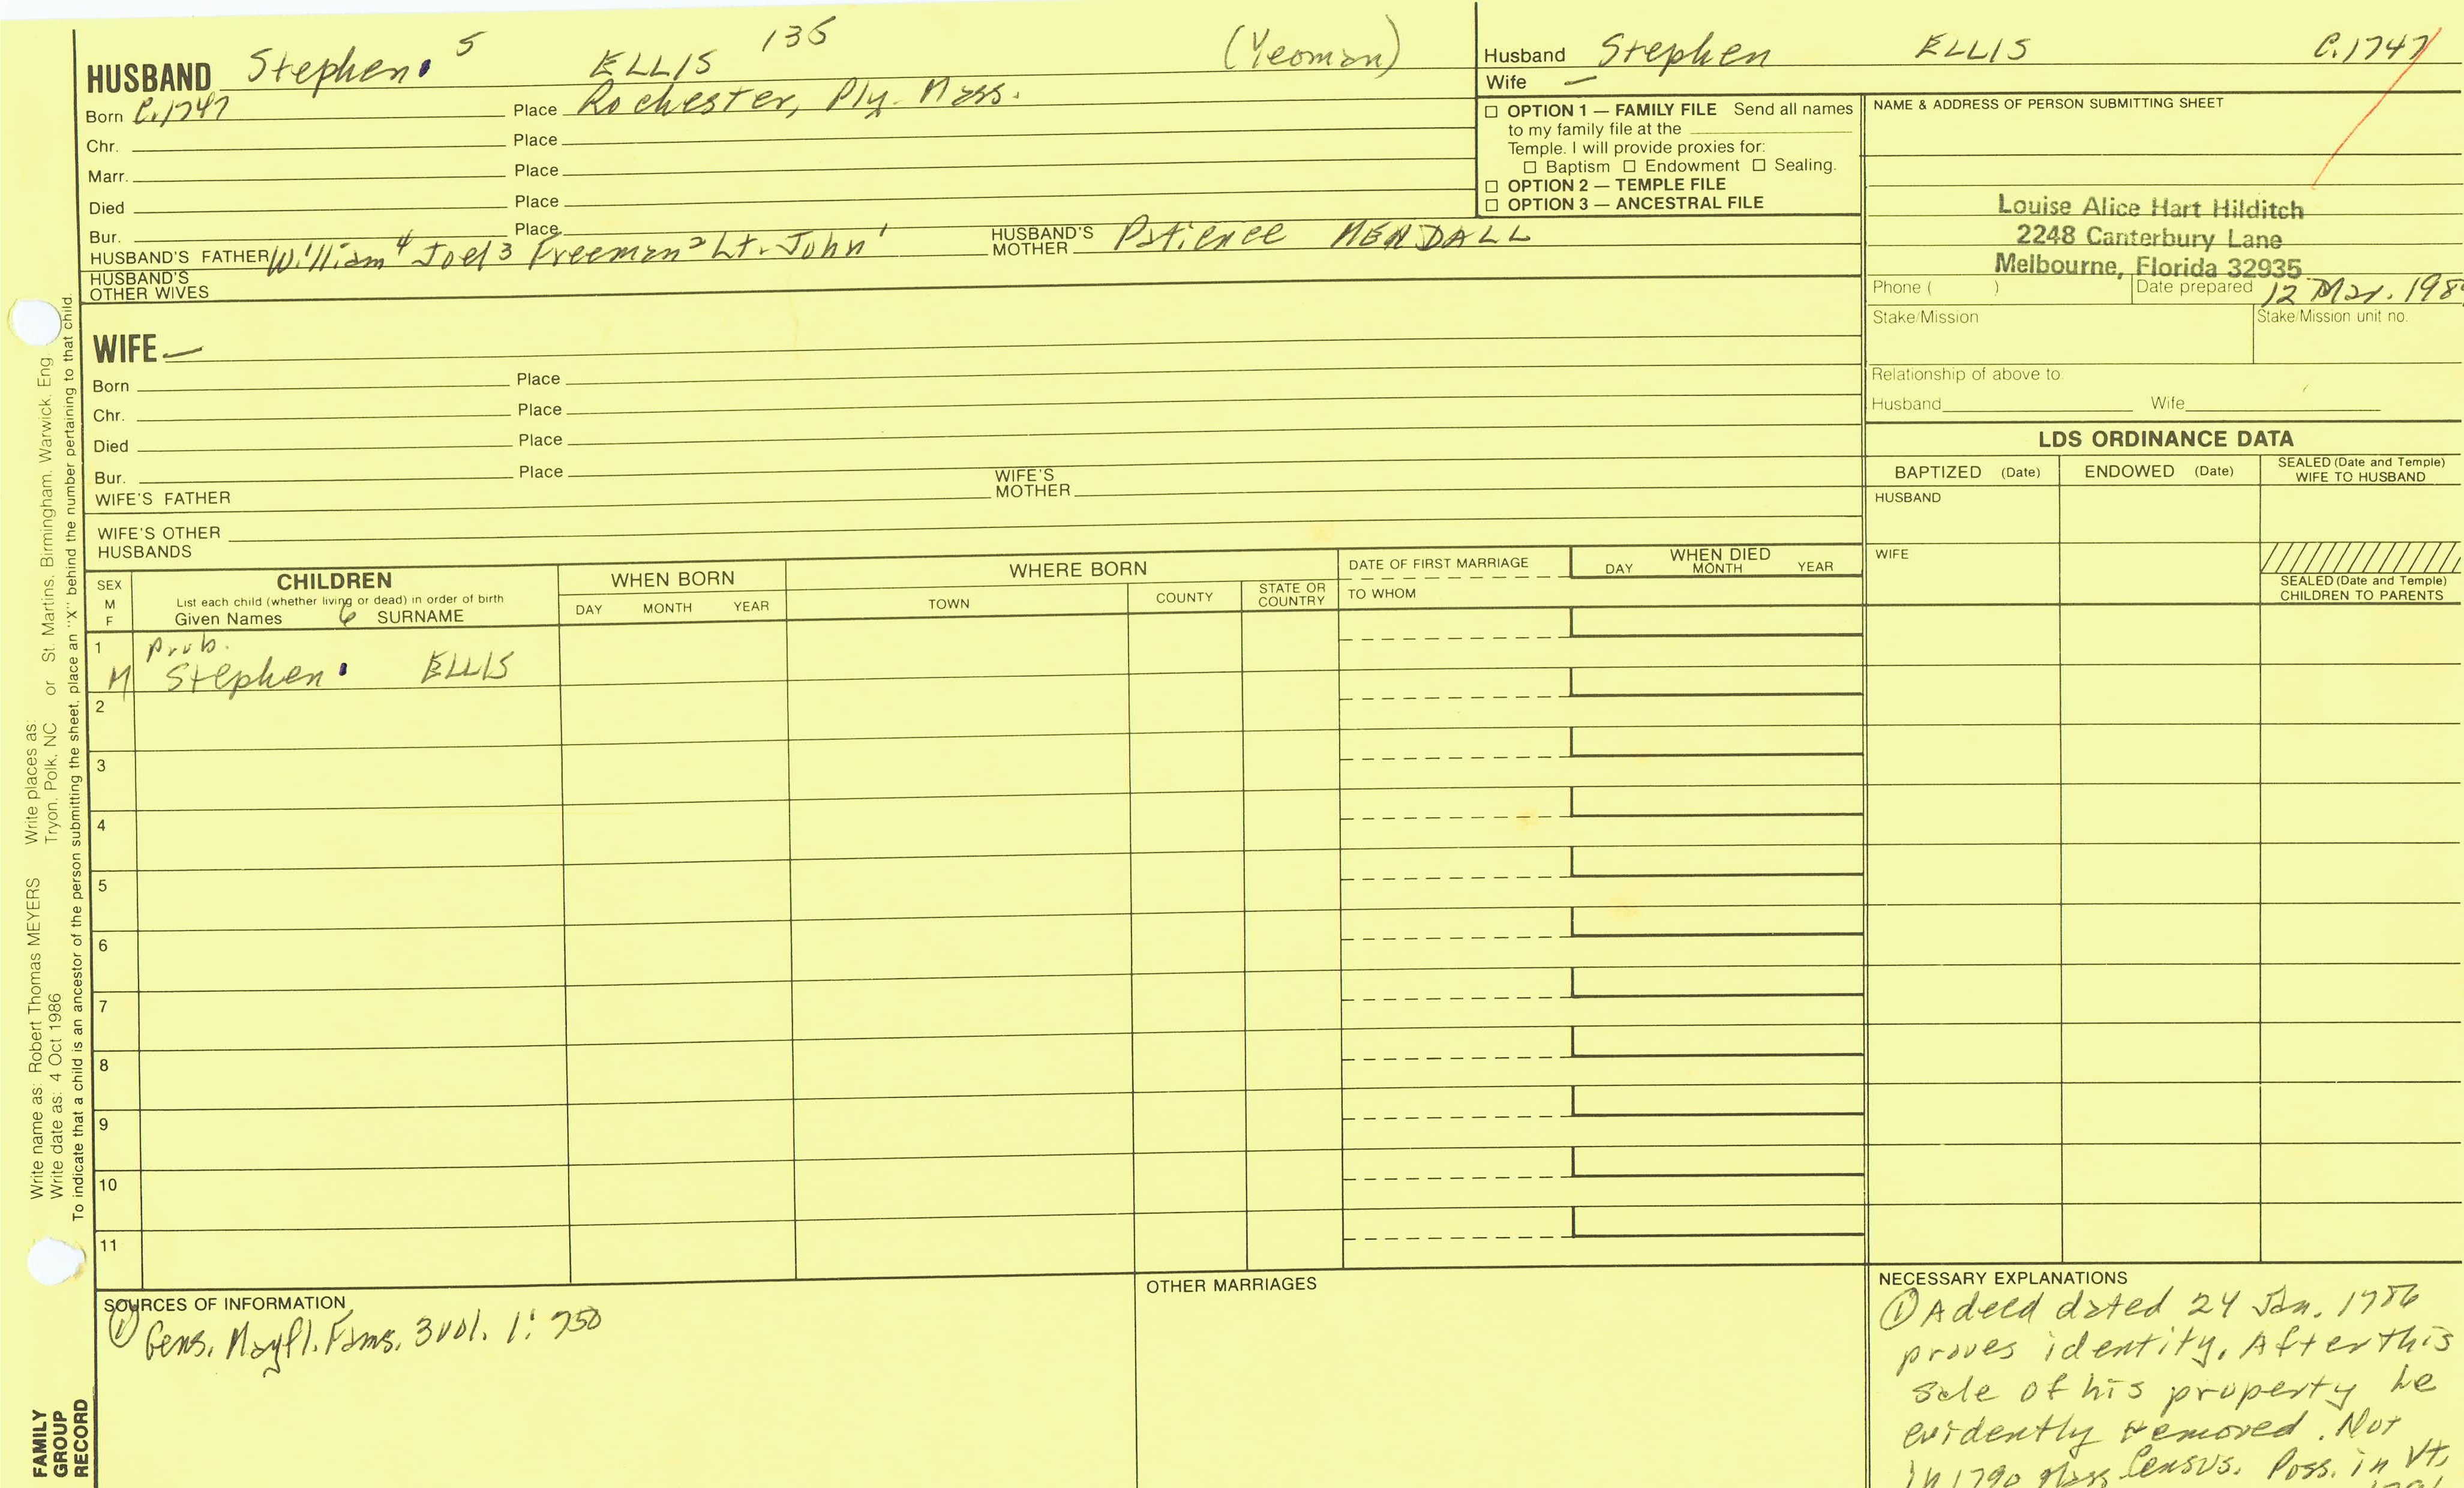 HUSBAND Stephen 5 ELLIS 135 (Yeoman)
Born C.1747 Place Rochester, Ply. Mass.
Chr. Place
Marr. Place
Died Place
Bur. Place
HUSBAND'S FATHER William 4 Joel 3 Freeman 2 Lt. John 1 HUSBAND'S MOTHER Patience MENDALL
HUSBAND'S OTHER WIVES
Husband Stephen ELLIS C.1747
Wife —
☐ OPTION 1 — FAMILY FILE Send all names
to my family file at the
Temple. I will provide proxies for:
☐ Baptism ☐ Endowment ☐ Sealing.
☐ OPTION 2 — TEMPLE FILE
☐ OPTION 3 — ANCESTRAL FILE
NAME & ADDRESS OF PERSON SUBMITTING SHEET
Louise Alice Hart Hilditch
2248 Canterbury Lane
Melbourne, Florida 32935
Phone ( ) Date prepared 12 Mar. 198
Stake/Mission Stake/Mission unit no.
Relationship of above to
Husband Wife
WIFE —
Born Place
Chr. Place
Died Place
Bur. Place
WIFE'S FATHER WIFE'S MOTHER
WIFE'S OTHER HUSBANDS
LDS ORDINANCE DATA
BAPTIZED (Date) ENDOWED (Date) SEALED (Date and Temple) WIFE TO HUSBAND
HUSBAND
WIFE
SEALED (Date and Temple) CHILDREN TO PARENTS
SEX M F
CHILDREN
List each child (whether living or dead) in order of birth
Given Names 6 SURNAME
WHEN BORN
DAY MONTH YEAR
WHERE BORN
TOWN COUNTY STATE OR COUNTRY
DATE OF FIRST MARRIAGE
TO WHOM
WHEN DIED
DAY MONTH YEAR
1 Prob.
M Stephen ELLIS
2
3
4
5
6
7
8
9
10
11
SOURCES OF INFORMATION
① Gens. Mayfl. Fams. 3 vol. 1: 750
OTHER MARRIAGES
NECESSARY EXPLANATIONS
① A deed dated 24 Jan. 1786
proves identity. After this
sale of his property he
evidently removed. Not
in 1790 Mass Census. Poss. in Vt.
Write name as: Robert Thomas MEYERS Write places as:
Write date as: 4 Oct 1986 Tryon, Polk, NC or St. Martins, Birmingham, Warwick, Eng
To indicate that a child is an ancestor of the person submitting the sheet, place an "X" behind the number pertaining to that child.
FAMILY
GROUP
RECORD